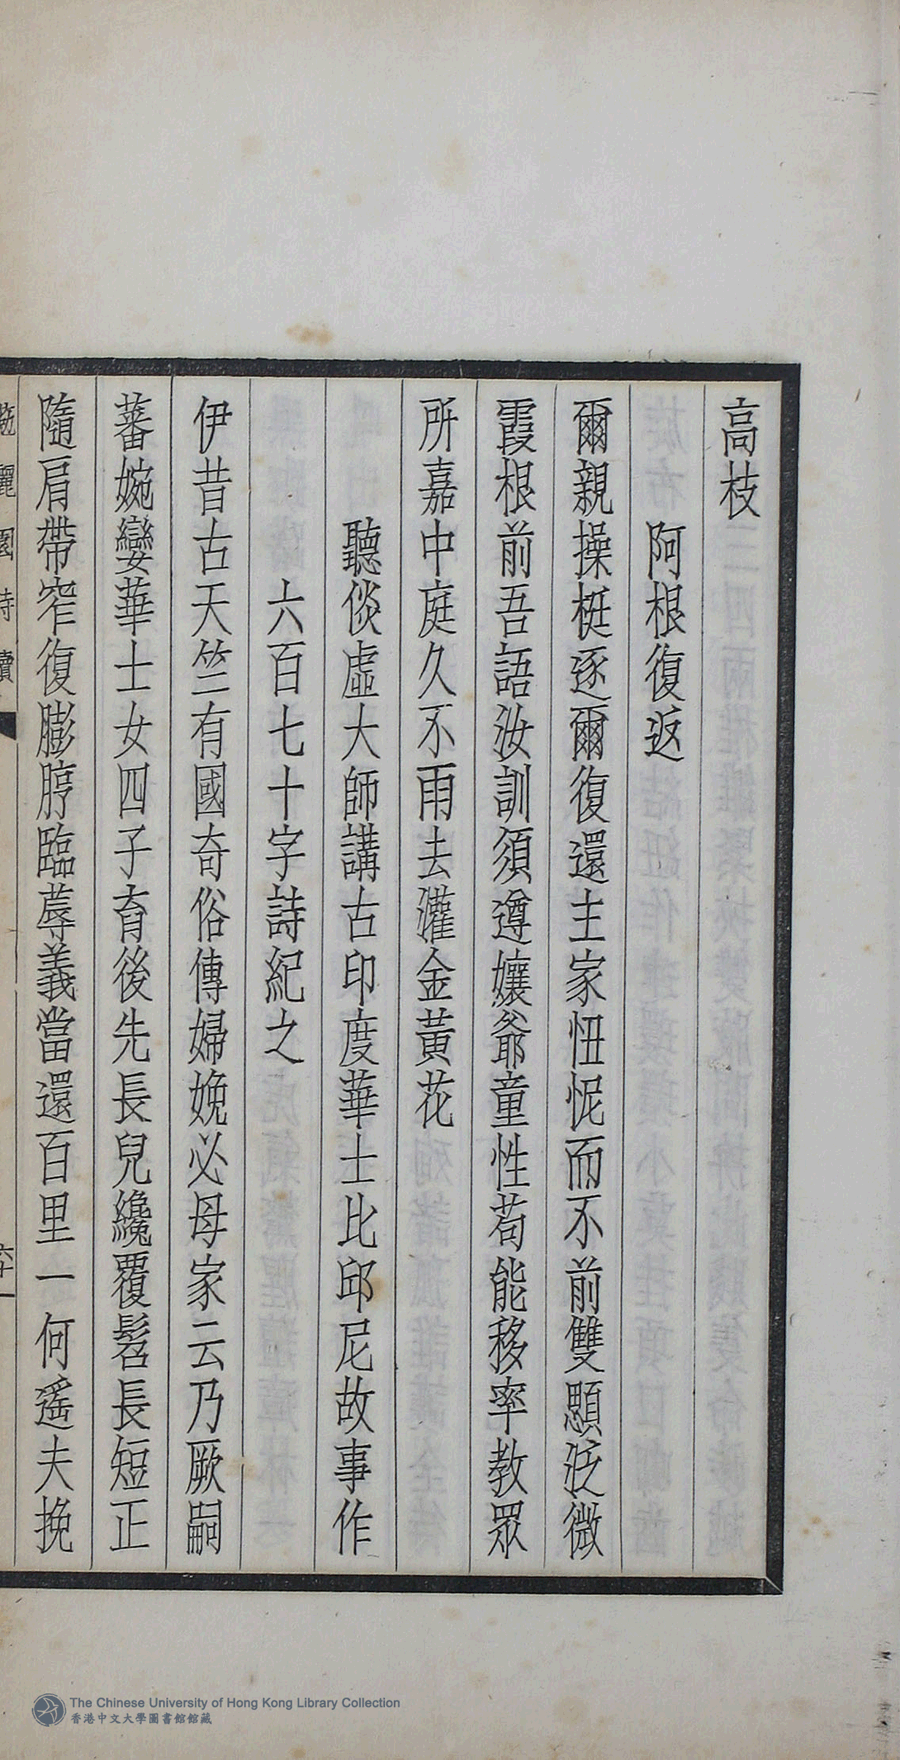 高枝
阿根復返
爾親操梃逐爾復還主家忸怩而不前雙顋泛微
霞根前吾語汝訓須遵孃爺童性苟能移率教眾
所嘉中庭久不雨去灌金黃花
聽倓虛大師講古印度華士比邱尼故事作
六百七十字詩紀之
伊昔古天竺有國奇俗傳婦娩必母家云乃厥嗣
蕃婉孌華士女四子育後先長兒纔覆髫長短正
隨肩帶窄復膨脝臨蓐義當還百里一何遙夫挽
園詩續
六十一
The Chinese University of Hong Kong Library Collection
香港中文大學圖書館館藏